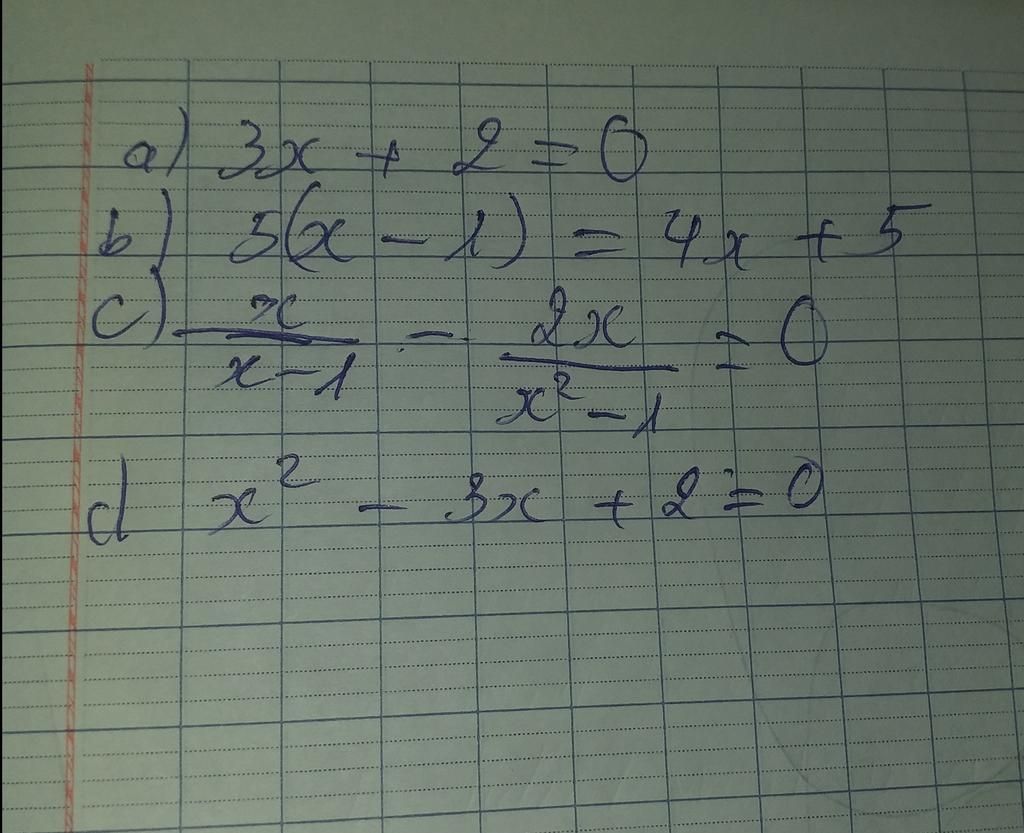 a) 3x + 2 = 0
b) 5(x - 1) = 4x + 5
c) x/(x-1) - 2x/(x²-1) = 0
d x² - 3x + 2 = 0